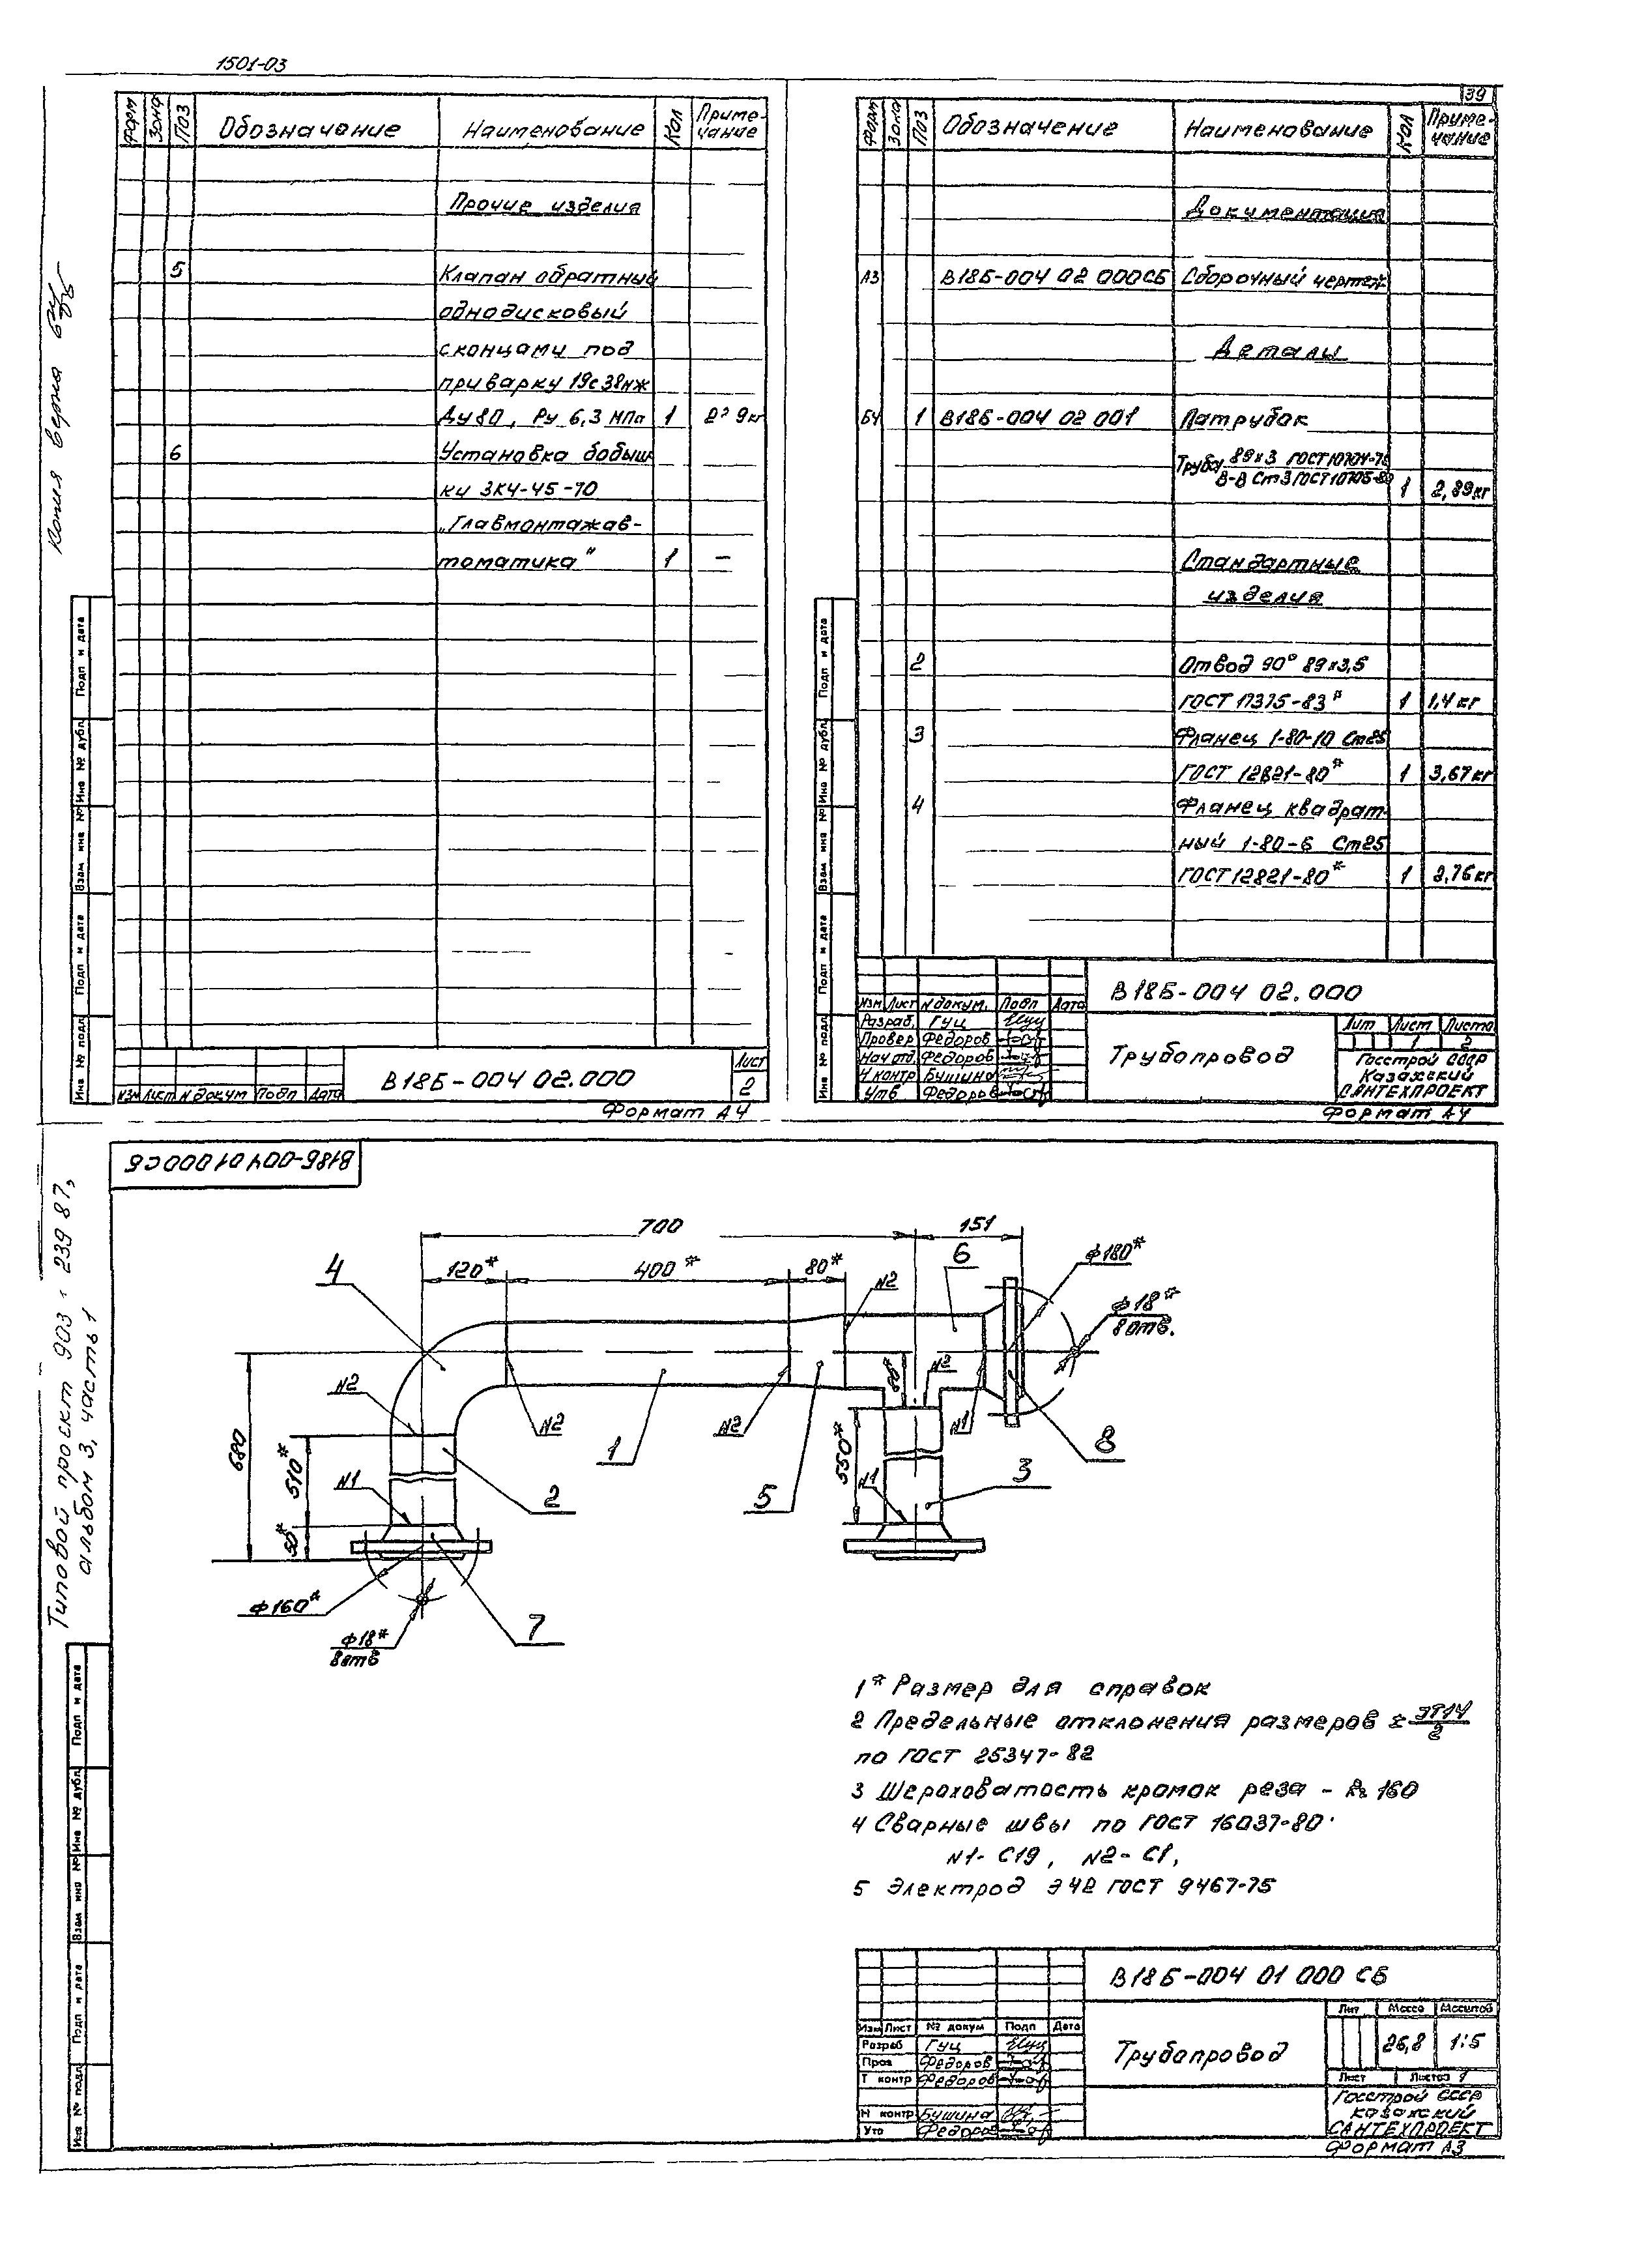 1501-03
39
Копия верна
Форм Зона Поз Обозначение Наименование Кол Приме-
чание
Прочие изделия
5 Клапан обратный
однодисковый
с концами под
приварку 19с38нж
Ду 80, Ру 6,3 МПа 1 9кг
6 Установка бобыш
ки ЗК4-45-70
„Главмонтажав-
томатика" 1 –
Подп и дата
Инв № дубл
Взам инв №
Подп и дата
Инв № подл
Изм Лист N докум Подп Дата
В18Б-004 02.000
Лист
2
Формат А4
Форм Зона Поз Обозначение Наименование Кол Приме-
чание
Документация
А3 В18Б-004 02 000СБ Сборочный чертеж
Детали
БЧ 1 В18Б-004 02 001 Патрубок
Труба 89х3 ГОСТ 10704-76
В-В Ст3 ГОСТ 10705-80 1 2,89кг
Стандартные
изделия
2 Отвод 90° 89х3,5
ГОСТ 17375-83* 1 1,4кг
3 Фланец 1-80-10 Ст25
ГОСТ 12821-80* 1 3,67кг
4 Фланец квадрат
ный 1-80-6 Ст25
ГОСТ 12821-80* 1 2,76кг
Подп и дата
Инв № дубл
Взам инв №
Подп и дата
Инв № подл
В18Б-004 02.000
Изм Лист N докум. Подп Дата
Разраб. Гуц
Провер Федоров
Нач отд Федоров
Н контр Бушина
Утв Федоров
Трубопровод
Лит Лист Листов
1 2
Госстрой СССР
Казахский
САНТЕХПРОЕКТ
Формат А4
В18Б-004 01 000СБ
Типовой проект 903 - 239 87,
альбом 3, часть 1
700 151
120* 400* 80*
4 6
N2
ф180*
ф18*
8отв.
N2 N2 N2 N2 N1
80*
680
510*
50*
550*
N1 N1
1 2 5 3 8
ф160*
ф18*
8отв
7
1* Размер для справок
2 Предельные отклонения размеров ± JT14/2
по ГОСТ 25347-82
3 Шероховатость кромок реза – Rz 160
4 Сварные швы по ГОСТ 16037-80·
N1- С19, N2- С1,
5 Электрод Э42 ГОСТ 9467-75
Подп и дата
Инв № дубл
Взам инв №
Подп и дата
Инв № подл
В18Б-004 01 000 СБ
Изм Лист № докум Подп Дата
Разраб Гуц
Пров Федоров
Т контр Федоров
Н контр Бушина
Утв Федоров
Трубопровод
Лит Масса Масштаб
26,8 1:5
Лист Листов 1
Госстрой СССР
Казахский
САНТЕХПРОЕКТ
Формат А3